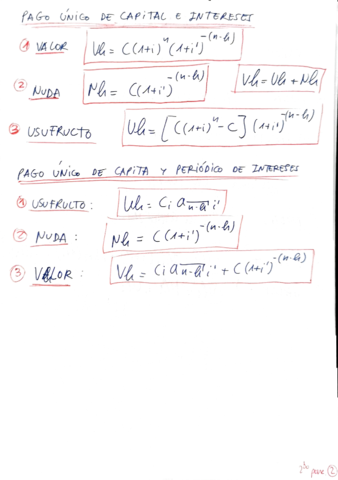 PAGO ÚNICO DE CAPITAL E INTERESES
① VALOR Vh = C(1+i)^n (1+i')^-(n-h)
② NUDA Nh = C(1+i')^-(n-h) Vh = Uh + Nh
③ USUFRUCTO Uh = [C(1+i)^n - C] (1+i')^-(n-h)
PAGO ÚNICO DE CAPITA Y PERIÓDICO DE INTERESES
① USUFRUCTO: Uh = Ci a n-h i'
② NUDA: Nh = C(1+i')^-(n-h)
③ VALOR: Vh = Ci a n-h i' + C(1+i')^-(n-h)
②